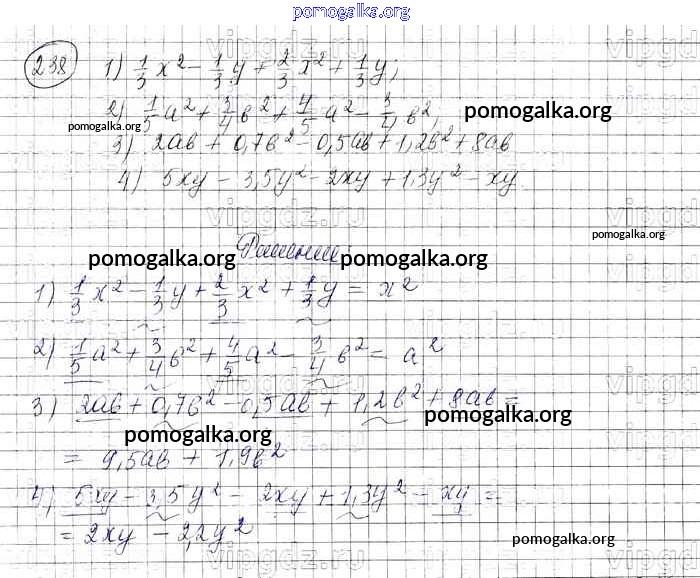 pomogalka.org
238 1) 1/3 x² - 1/3 y + 2/3 x² + 1/3 y;
2) 1/5 a² + 3/4 b² + 4/5 a² - 3/4 b²,
pomogalka.org
pomogalka.org
3) 2ab + 0,7b² - 0,5ab + 1,2b² + 8ab
4) 5xy - 3,5y² - 2xy + 1,3y² - xy.
pomogalka.org
Решение:
pomogalka.org
pomogalka.org
1) 1/3 x² - 1/3 y + 2/3 x² + 1/3 y = x²
2) 1/5 a² + 3/4 b² + 4/5 a² - 3/4 b² = a²
3) 2ab + 0,7b² - 0,5ab + 1,2b² + 8ab =
pomogalka.org
pomogalka.org
= 9,5ab + 1,9b²
4) 5xy - 3,5y² - 2xy + 1,3y² - xy =
= 2xy - 2,2y²
pomogalka.org
vipgdz.ru